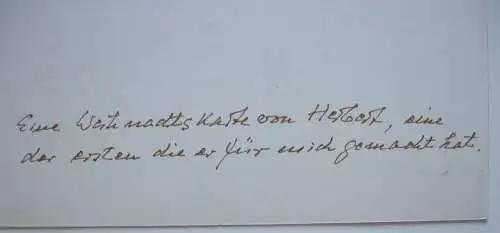 Eine Weihnachtskarte von Herbert, eine
der ersten die er für mich gemacht hat.